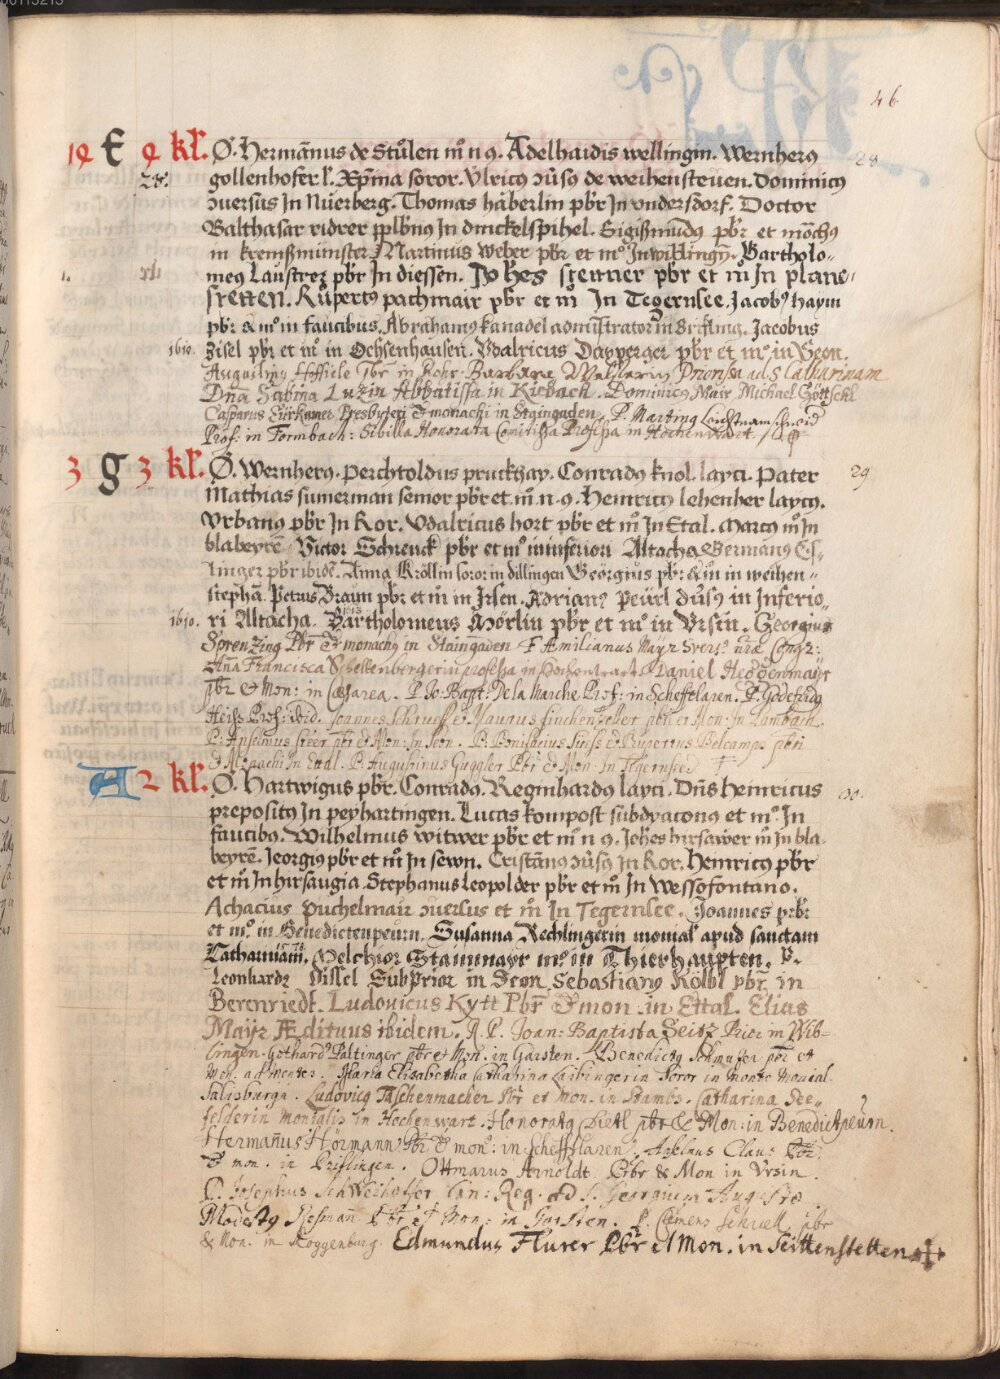 46
19 E 4 kl. Ø. Hermānus de Stůlen m̊ n 9. Adelhaidis wellingin. Wernherꝰ 28
28. gollenhofer l. Xp̄ina soror. Vlricꝰ ɔuꝰsꝰ de weihensteuen. Dominicꝰ
ɔuersus In Nuerberg. Thomas häberlin pbr̄ In vndersdorf. Doctor
Balthasar ridrer pplb̄nꝰ In dinckelspihel. Sigißmūdꝰ pbr̄ et mōchꝰ
in kremßmünster Martinus Weber pbr̄ et m̊ In wiblingn̄. Bartholo-
meꝰ Laustrer pbr̄ In diessen. Joh̄es stenner pbr̄ et m̊ In plane-
stetten. Růpertꝰ pachmair pbr̄ et m̊ In Tegernsee. Jacobꝰ Haym
pbr̄ & m̊ in faucibus. Abrahamꝰ kanadel administrator in Brifling. Jacobus
1610. Zisel pbr̄ et m̊ in Ochsenhausen. Vdalricus Dapperger pbr̄ et m̊ in Seon.
Augustinꝰ Höffele Pbr in Rohr. Barbara Welserin Priorissa ad S Catharinam
Dn̄a Sabina Luzin Abbatissa in Kiebach. Dominicꝰ Mair Michael Göttschl
Casparus Türkhner Presbyteri & monachi in Staingaden. P. Martinꝰ
Prof: in Formbach: Sibilla Honorata Comitissa Professa in Hochenwart.
3 g 3 kl. Ø. Wernherꝰ. Perchtoldus pruckhay. Conradꝰ knol. layci. Pater 29
Mathias sumerman senior pbr̄ et m̊ n. 9. Heinricꝰ lehenher laycꝰ.
Vrbanꝰ pbr̄ In Ror. Vdalricus hort pbr̄ et m̊ In Etal. Marcꝰ m̊ In
blabeyrē. Victor Schrenck pbr̄ et m̊ in inferiori Altacha Germanꝰ Es-
linger pbr̄ ibidē. Anna Kröllin soror in dillingen Georgius pbr̄ & m̊ in weihen-
stephā. Petrus Braun pbr̄ et m̊ in Irsen. Adrianꝰ Peürl ɔuꝰsꝰ in Inferio-
1610. ri Altacha. Bartholomeus Mörlin pbr̄ et m̊ in Vrsin. Georgius
Sprenzing Pbr̄ & monachꝰ in Staingaden F Æmilianus Mayr
Anna Francisca Schellenbergerin professa in Hochenwart. Daniel Heggenmayr
pbr̄ & Mon: in Cæsarea. P. Jo: Bapt: De la Marche Prof: in Schefftlaren. P. Godefridꝰ
Heiss Prof: ibid. Joannes Schrueff et Maurus Finckenzeller pbri et Mon: In Lambach.
P: Anselmus steer pbr̄ et Mon: In Seon. P: Bonifacius Suess et Rupertus Belcampo pbri
& Monachi in Ettal. P. Augustinus Guggler Pbr̄ & Mon In Tegernsee
A 2 kl. Ø. Hartwigus pbr̄. Conradꝰ. Reginhardꝰ layci. Dn̄s Heinricus 30.
prepositꝰ in peyhartingen. Lucas kompost subdyaconꝰ et m̊ In
faucibꝰ. Wilhelmus witwer pbr̄ et m̊ n 9. Joh̄es hirsawer m̊ In bla
beyrē. Jeorgiꝰ pbr̄ et m̊ In sewn. Cristānꝰ ɔuꝰsꝰ In Ror. Heinricꝰ pbr̄
et m̊ In hirsaugia Stephanus Leopolder pbr̄ et m̊ In Wessofontano.
Achacius Puchelmair ɔuersus et m̊ In Tegernsee. Joannes pr̄br̄
et m̊ in Benedictenpeurn. Susanna Rechlingerin monial' apud sanctam
Catharinam. Melchior Stainmayr m̊ in Thierhaupten. P.
Leonhardꝰ Dissel SubPrior in Seon. Sebastianꝰ Kölbl pbr̄ in
Berenriedt. Ludovicus Kytt Pbr̄ & mon: in Ettal. Elias
Mayr Ædituus ibidem. R. P. Joan: Baptista Seitz Prior in Wib-
lingen. Gothardꝰ Paltinger pbr̄ & Mon. in Garsten. Benedictꝰ Schmuser pbr̄ et
Mon. Maria Elisabetha Catharina Laibingerin Soror in monte Monial.
Salisburgæ. Ludovicꝰ Täschenmacher Pbr̄ et Mon. in Stambs. Catharina See-
felderin monialis in Hochenwart. Honoratꝰ Dietl pbr & Mon: in Benedictpeurn.
Hermañus Hörmann Pbr̄ & mon: in Schefftlaren. Anselmus Claus Pbr̄
& mon. in Prifling en. Ottmarus Arnoldt Prbr & Mon in Vrsin.
P. Josephus Schweihofer Can: Reg. ad S. Georgium Augustæ
Modestꝰ Resman Pbr̄ et Mon: in Garsten. P. Clemens Schiell pbr
& Mon. in Roggenburg. Edmundus Flurer Pbr̄ et Mon. in Seittenstetten